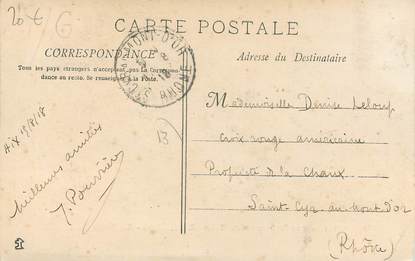 20 €
CARTE POSTALE
CORRESPONDANCE
Tous les pays étrangers n'acceptent pas la Correspon-
dance au recto. Se renseigner à la Poste.
Adresse du Destinataire
MONT-D'OR
RHONE
Aix 17/8/18
Meilleures amitiés
J.
13
Mademoiselle Denise Leloup
Croix rouge américaine
Propriété de la Chaux
Saint Cyr au Mont D'or
(Rhône)